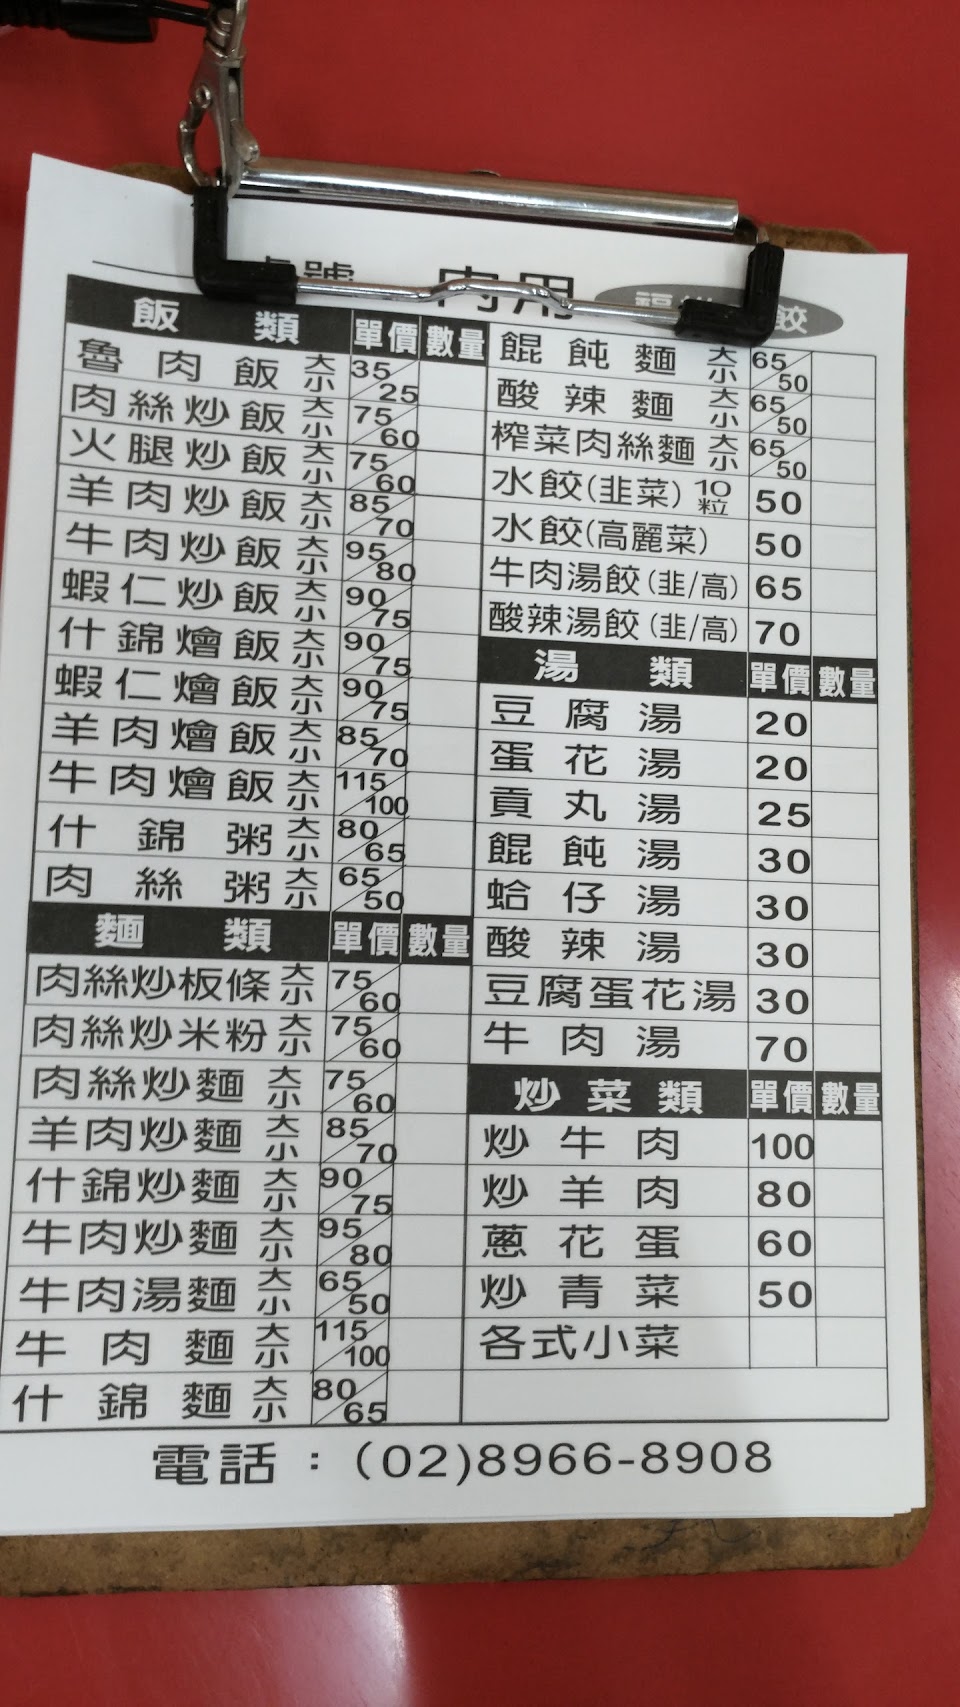 內用
飯類 單價 數量
魯肉飯 大小 35/25
肉絲炒飯 大小 75/60
火腿炒飯 大小 75/60
羊肉炒飯 大小 85/70
牛肉炒飯 大小 95/80
蝦仁炒飯 大小 90/75
什錦燴飯 大小 90/75
蝦仁燴飯 大小 90/75
羊肉燴飯 大小 85/70
牛肉燴飯 大小 115/100
什錦粥 大小 80/65
肉絲粥 大小 65/50
麵類 單價 數量
肉絲炒板條 大小 75/60
肉絲炒米粉 大小 75/60
肉絲炒麵 大小 75/60
羊肉炒麵 大小 85/70
什錦炒麵 大小 90/75
牛肉炒麵 大小 95/80
牛肉湯麵 大小 65/50
牛肉麵 大小 115/100
什錦麵 大小 80/65
餛飩麵 大小 65/50
酸辣麵 大小 65/50
榨菜肉絲麵 大小 65/50
水餃(韭菜) 10粒 50
水餃(高麗菜) 50
牛肉湯餃(韭/高) 65
酸辣湯餃(韭/高) 70
湯類 單價 數量
豆腐湯 20
蛋花湯 20
貢丸湯 25
餛飩湯 30
蛤仔湯 30
酸辣湯 30
豆腐蛋花湯 30
牛肉湯 70
炒菜類 單價 數量
炒牛肉 100
炒羊肉 80
蔥花蛋 60
炒青菜 50
各式小菜
電話：(02)8966-8908